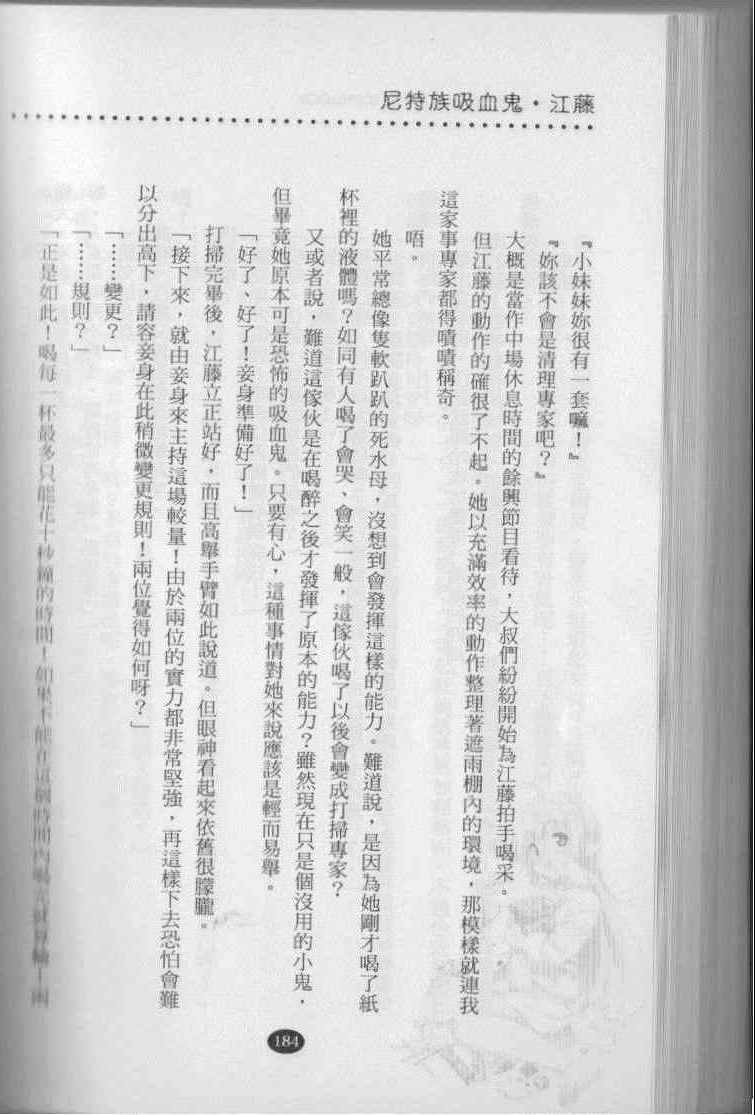 尼特族吸血鬼・江藤
『小妹妹妳很有一套嘛！』
『妳該不會是清理專家吧？』
大概是當作中場休息時間的餘興節目看待，大叔們紛紛開始為江藤拍手喝采。
但江藤的動作的確很了不起。她以充滿效率的動作整理著遮雨棚內的環境，那模樣就連我
這家事專家都得嘖嘖稱奇。
唔。
她平常總像隻軟趴趴的死水母，沒想到會發揮這樣的能力。難道說，是因為她剛才喝了紙
杯裡的液體嗎？如同有人喝了會哭、會笑一般，這傢伙喝了以後會變成打掃專家？
又或者說，難道這傢伙是在喝醉之後才發揮了原本的能力？雖然現在只是個沒用的小鬼，
但畢竟她原本可是恐怖的吸血鬼。只要有心，這種事情對她來說應該是輕而易舉。
「好了、好了！妾身準備好了！」
打掃完畢後，江藤立正站好，而且高舉手臂如此說道。但眼神看起來依舊很朦朧。
「接下來，就由妾身來主持這場較量！由於兩位的實力都非常堅強，再這樣下去恐怕會難
以分出高下，請容妾身在此稍微變更規則！兩位覺得如何呀？」
「……變更？」
「……規則？」
「正是如此！喝每一杯最多只能花十秒鐘的時間！如果不能在這個時間內喝
184